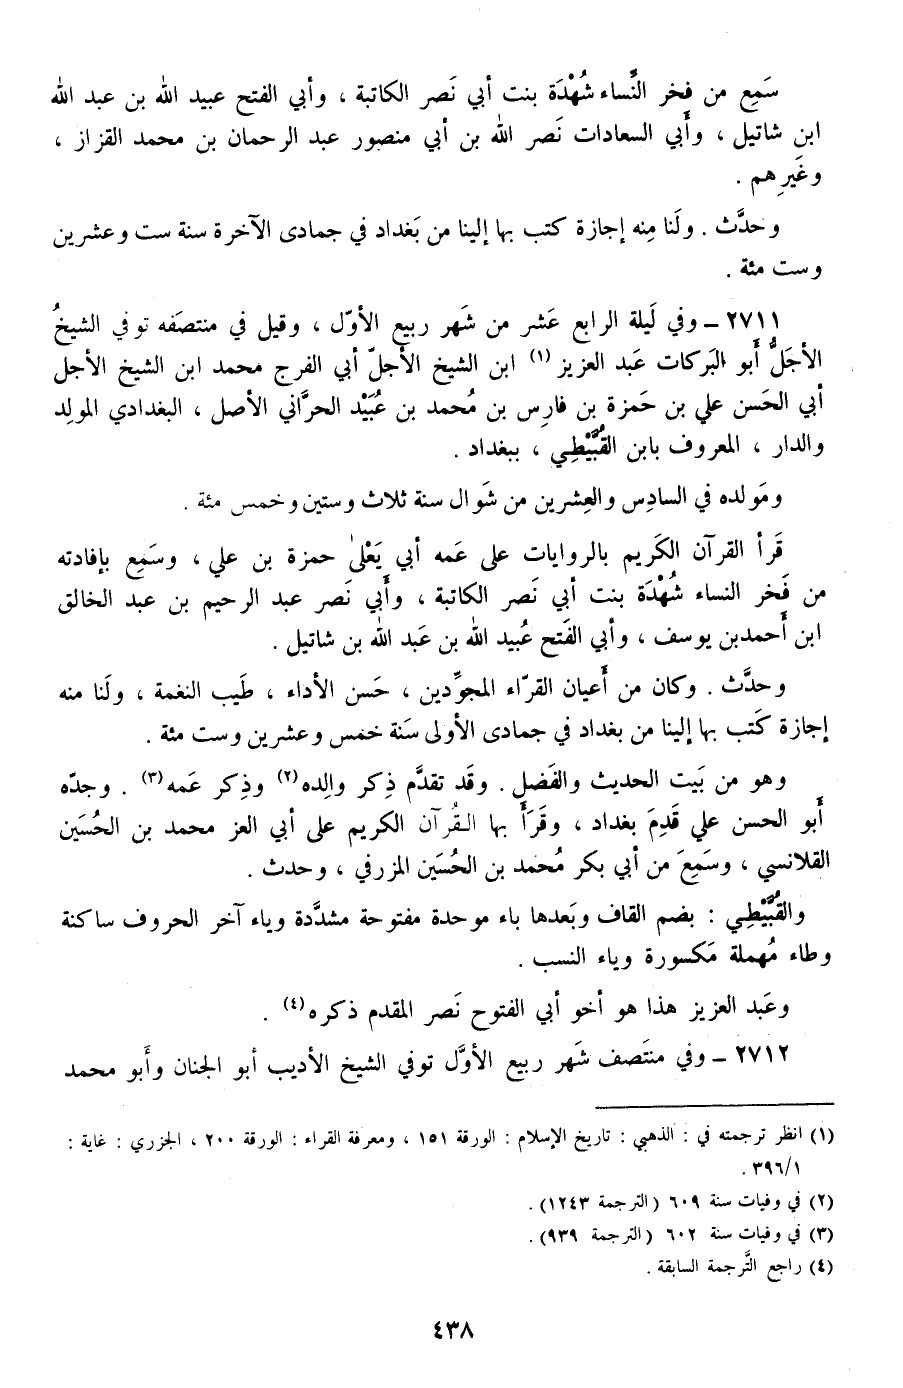 سَمِع من فخر النِّساء شُهْدَة بنت أبي نَصر الكاتبة ، وأبي الفتح عبيد الله بن عبد الله
ابن شاتيل ، وأَبي السعادات نَصر الله بن أبي منصور عبد الرحمان بن محمد القزاز ،
وغَيرِهم .
وحدَّث . ولَنا مِنه إجازة كتب بها إلينا من بَغداد في جمادى الآخرة سنة ست وعشرين
وست مئة .
٢٧١١ ــ وفي لَيلة الرابع عَشر من شَهر ربيع الأوّل ، وقيل في منتصَفه توفي الشيخُ
الأجَلُّ أَبو البَركات عَبد العزيز (١) ابن الشيخ الأجلّ أَبي الفرج محمد ابن الشيخ الأجل
أبي الحَسن علي بن حَمزة بن فارِس بن مُحمد بن عُبَيْد الحرَّاني الأصل ، البغدادي المولِد
والدار ، المعروف بابن القُبَّيْطِي ، ببغداد .
ومَولده في السادِس والعِشرين من شَوال سنة ثلاث وستين وخمس مئة .
قَرأ القرآن الكَريم بالروايات على عَمه أبي يَعْلىٰ حمزة بن علي ، وسَمِع بإفادته
من فَخر النساء شُهْدَة بنت أبي نَصر الكاتبة ، وأَبي نَصر عبد الرحيم بن عبد الخالق
ابن أَحمدبن يوسف ، وأبي الفَتح عُبيد الله بن عَبد الله بن شاتيل .
وحدَّث . وكان من أَعيان القرّاء المجوِّدين ، حَسن الأداء ، طَيب النغمة ، ولَنا منه
إجازة كَتب بها إلينا من بغداد في جمادى الأولى سَنة خمس وعشرين وست مئة .
وهو من بَيت الحديث والفَضل . وقَد تقدَّم ذِكر والِده (٢) وذِكر عَمه (٣) . وجدّه
أَبو الحسن علي قَدِمَ بغداد ، وقَرَأَ بها القُرآن الكريم على أبي العز محمد بن الحُسَين
القلانسي ، وسَمِعَ من أبي بكر مُحمد بن الحُسَين المزرفي ، وحدث .
والقُبَّيْطِي : بضم القاف وبَعدها باء موحدة مفتوحة مشدَّدة وياء آخر الحروف ساكنة
وطاء مُهملة مَكسورة وياء النسب .
وعَبد العزيز هذا هو أخو أبي الفتوح نَصر المقدم ذكره (٤) .
٢٧١٢ ــ وفي منتَصف شَهر ربيع الأوَّل توفي الشيخ الأديب أبو الجنان وأَبو محمد
(١) انظر ترجمته في : الذهبي : تاريخ الإسلام : الورقة ١٥١ ، ومعرفة القراء : الورقة ٢٠٠ ، الجزري : غاية :
٣٩٦/١ .
(٢) في وفيات سنة ٦٠٩ (الترجمة ١٢٤٣) .
(٣) في وفيات سنة ٦٠٢ (الترجمة ٩٣٩) .
(٤) راجع التَّرجمة السابقة .
٤٣٨